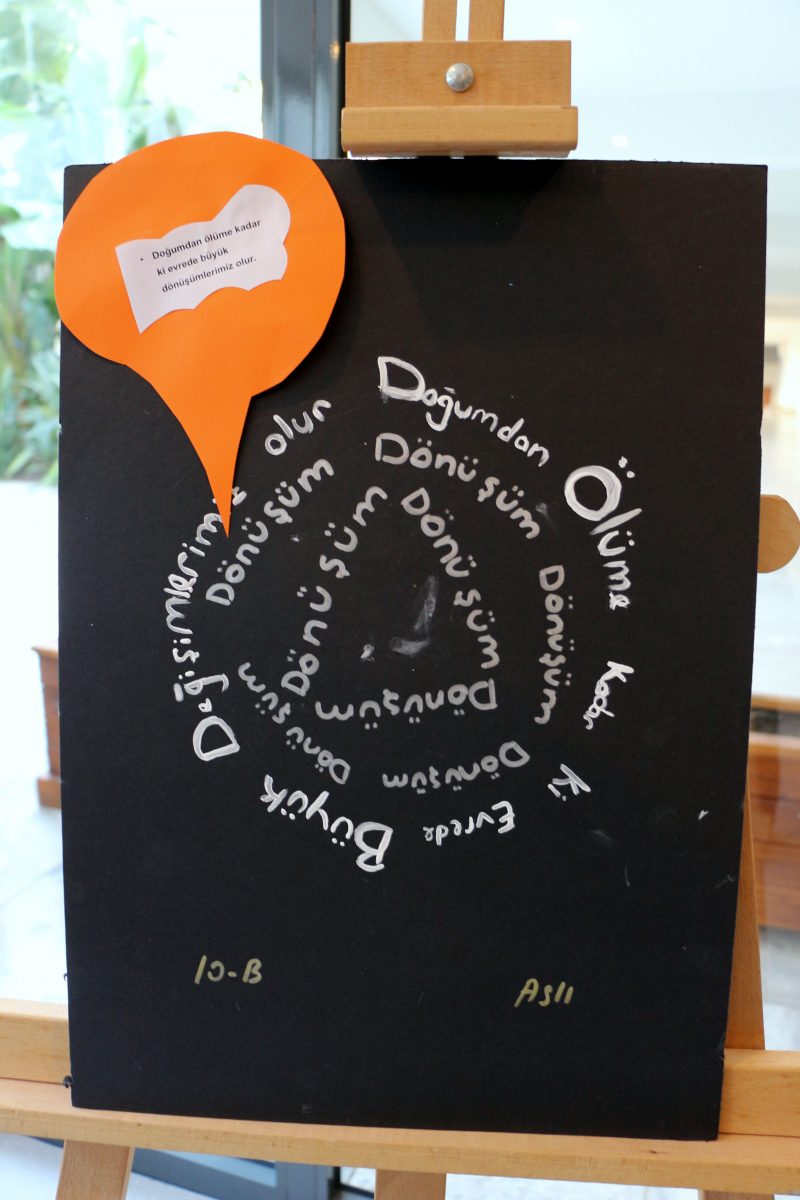 • Doğumdan ölüme kadar
ki evrede büyük
dönüşümlerimiz olur.
Doğumdan Ölüme kadar ki Evrede Büyük Değişimlerimiz olur
Dönüşüm Dönüşüm Dönüşüm Dönüşüm Dönüşüm
Dönüşüm Dönüşüm Dönüşüm
10-B
Aslı